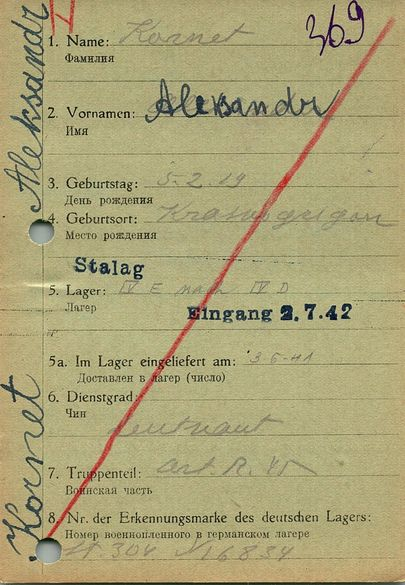 369
1. Name: Kornet
Фамилия
2. Vornamen: Aleksandr
Имя
3. Geburtstag: 5-2.19
День рождения
4. Geburtsort:
Место рождения
Stalag
5. Lager: IV E nach IV D
Лагер
Eingang 2.7.42
5a. Im Lager eingeliefert am: 3-6-41
Доставлен в лагер (число)
6. Dienstgrad:
Чин
leutnant
7. Truppenteil: art. R. 45
Воинская часть
8. Nr. der Erkennungsmarke des deutschen Lagers:
Номер военнопленного в германском лагере
St. 304 N 16834
Kornet Aleksandr